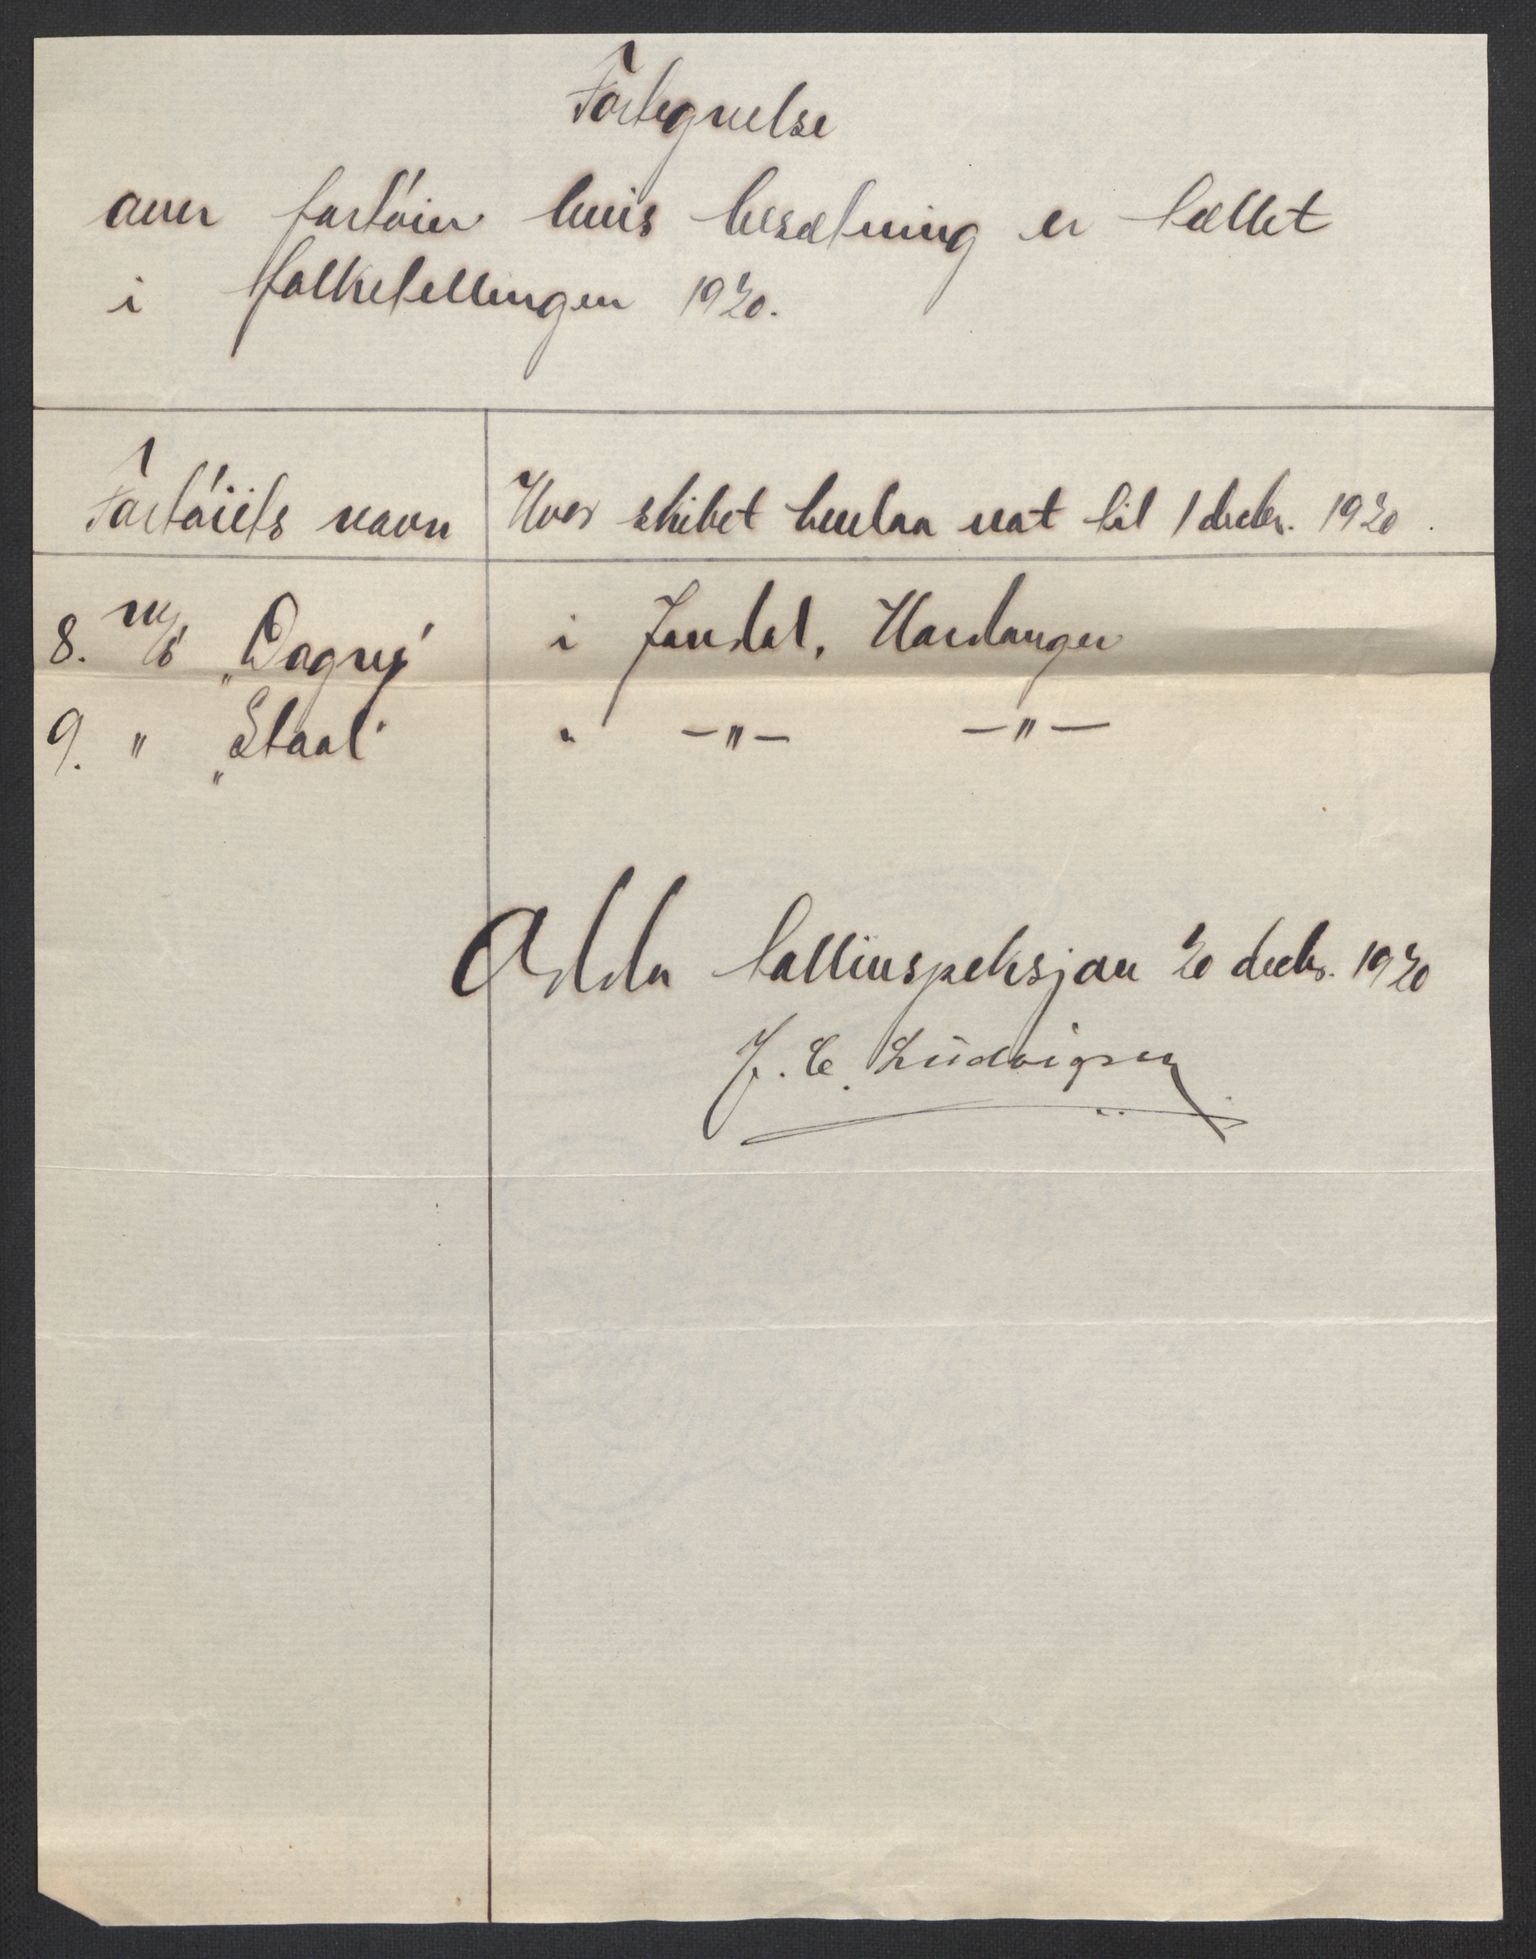 Fortegnelse
over fartøier hvis besætning er tællet
i folketellingen 1920.
Fartøiets navn
Hvor skibet henlaa nat til 1 decbr. 1920.
8. m/s „Dagny" i Jondal, Hardanger
9. " „Staal" " —"— —"—
Odda tollinspeksjon 20 decbr. 1920
J. C. Ludvigsen